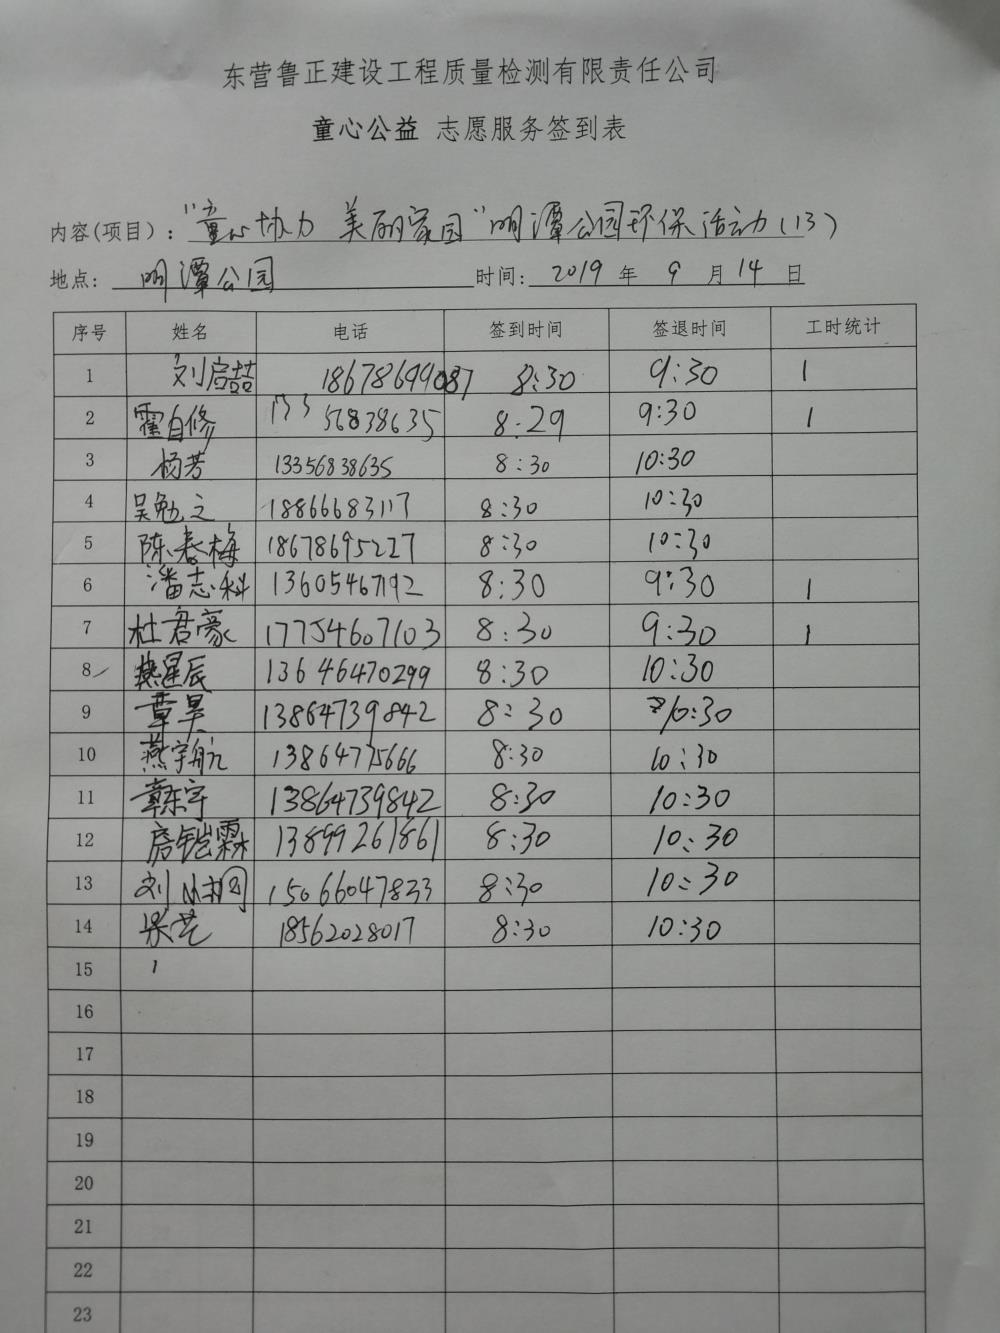 东营鲁正建设工程质量检测有限责任公司
童心公益 志愿服务签到表
内容(项目)："童心协力 美丽家园"明潭公园环保活动(13)
地点: 明潭公园 时间: 2019 年 9 月 14 日
序号 姓名 电话 签到时间 签退时间 工时统计
1 刘启喆 18678699087 8:30 9:30 1
2 霍自修 133 56838635 8:29 9:30 1
3 杨芳 13356838635 8:30 10:30
4 吴勉之 18866683117 8:30 10:30
5 陈春梅 18678695227 8:30 10:30
6 潘志科 13605467192 8:30 9:30 1
7 杜君豪 17754607103 8:30 9:30 1
8 燕星辰 13646470299 8:30 10:30
9 章昊 13864739842 8:30 10:30
10 燕宇航 13864775666 8:30 10:30
11 章东宇 13864739842 8:30 10:30
12 房铠霖 13899261861 8:30 10:30
13 刘 15066047833 8:30 10:30
14 梁艺 18562028017 8:30 10:30
15
16
17
18
19
20
21
22
23